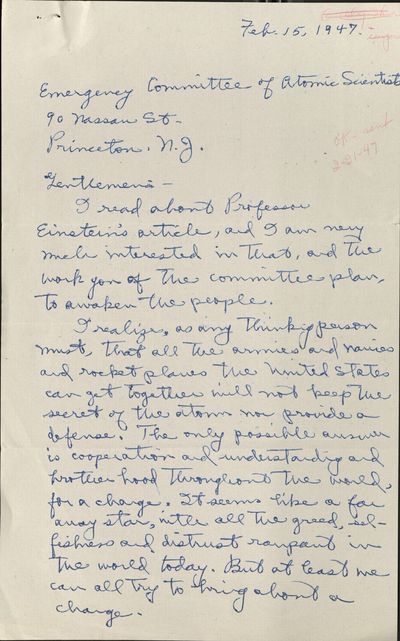 Feb. 15, 1947.
Emergency Committee of Atomic Scientists
90 Nassau St.
Princeton. N.J.
ok - sent
2-21-47
Gentlemen: -
I read about Professor
Einstein's article, and I am very
much interested in that, and the
work you of the committee plan,
to awaken the people.
I realize, as any thinking person
must, that all the armies and navies
and rocket planes the United States
can get together will not keep the
secret of the atom nor provide a
defense. The only possible answer
is cooperation and understanding and
brotherhood throughout the world,
for a change. It seems like a far
away star, with all the greed, sel-
fishness and distrust rampant in
the world today. But at least we
can all try to bring about a
change.